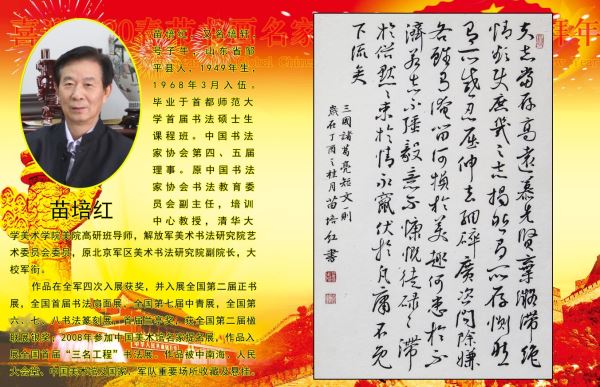 苗培红，又名培轩，
号子年，山东省邹
平县人，1949年生，
1968年3月入伍。
毕业于首都师范大
学首届书法硕士生
课程班。中国书法
家协会第四、五届
理事。原中国书法
家协会书法教育委
员会副主任，培训
中心教授，清华大
学美术学院美院高研班导师，解放军美术书法研究院艺
术委员会委员，原北京军区美术书法研究院副院长，大
校军衔。
作品在全军四次入展获奖，并入展全国第二届正书
展，全国首届书法扇面展、全国第七届中青展，全国第
六、七、八书法篆刻展，首届兰亭奖，获全国第二届楹
联展银奖，2008年参加中国美术馆名家提名展，作品入
展全国首届“三名工程”书法展。作品被中南海、人民
大会堂、中国美术馆及国家、军队重要场所收藏及悬挂。
苗培红
夫志當存高遠慕先賢棄凝滯絕
情欲使庶幾之志揭然有所存惻然
有所感忍屈伸去細碎廣咨問除嫌
吝雖有淹留何損於美趣何患於不
濟若志不強毅意不慷慨徒碌碌滯
於俗默默束於情永竄伏於凡庸不免
下流矣
三國諸葛亮短文一則
歲在丁酉之桂月苗培红書